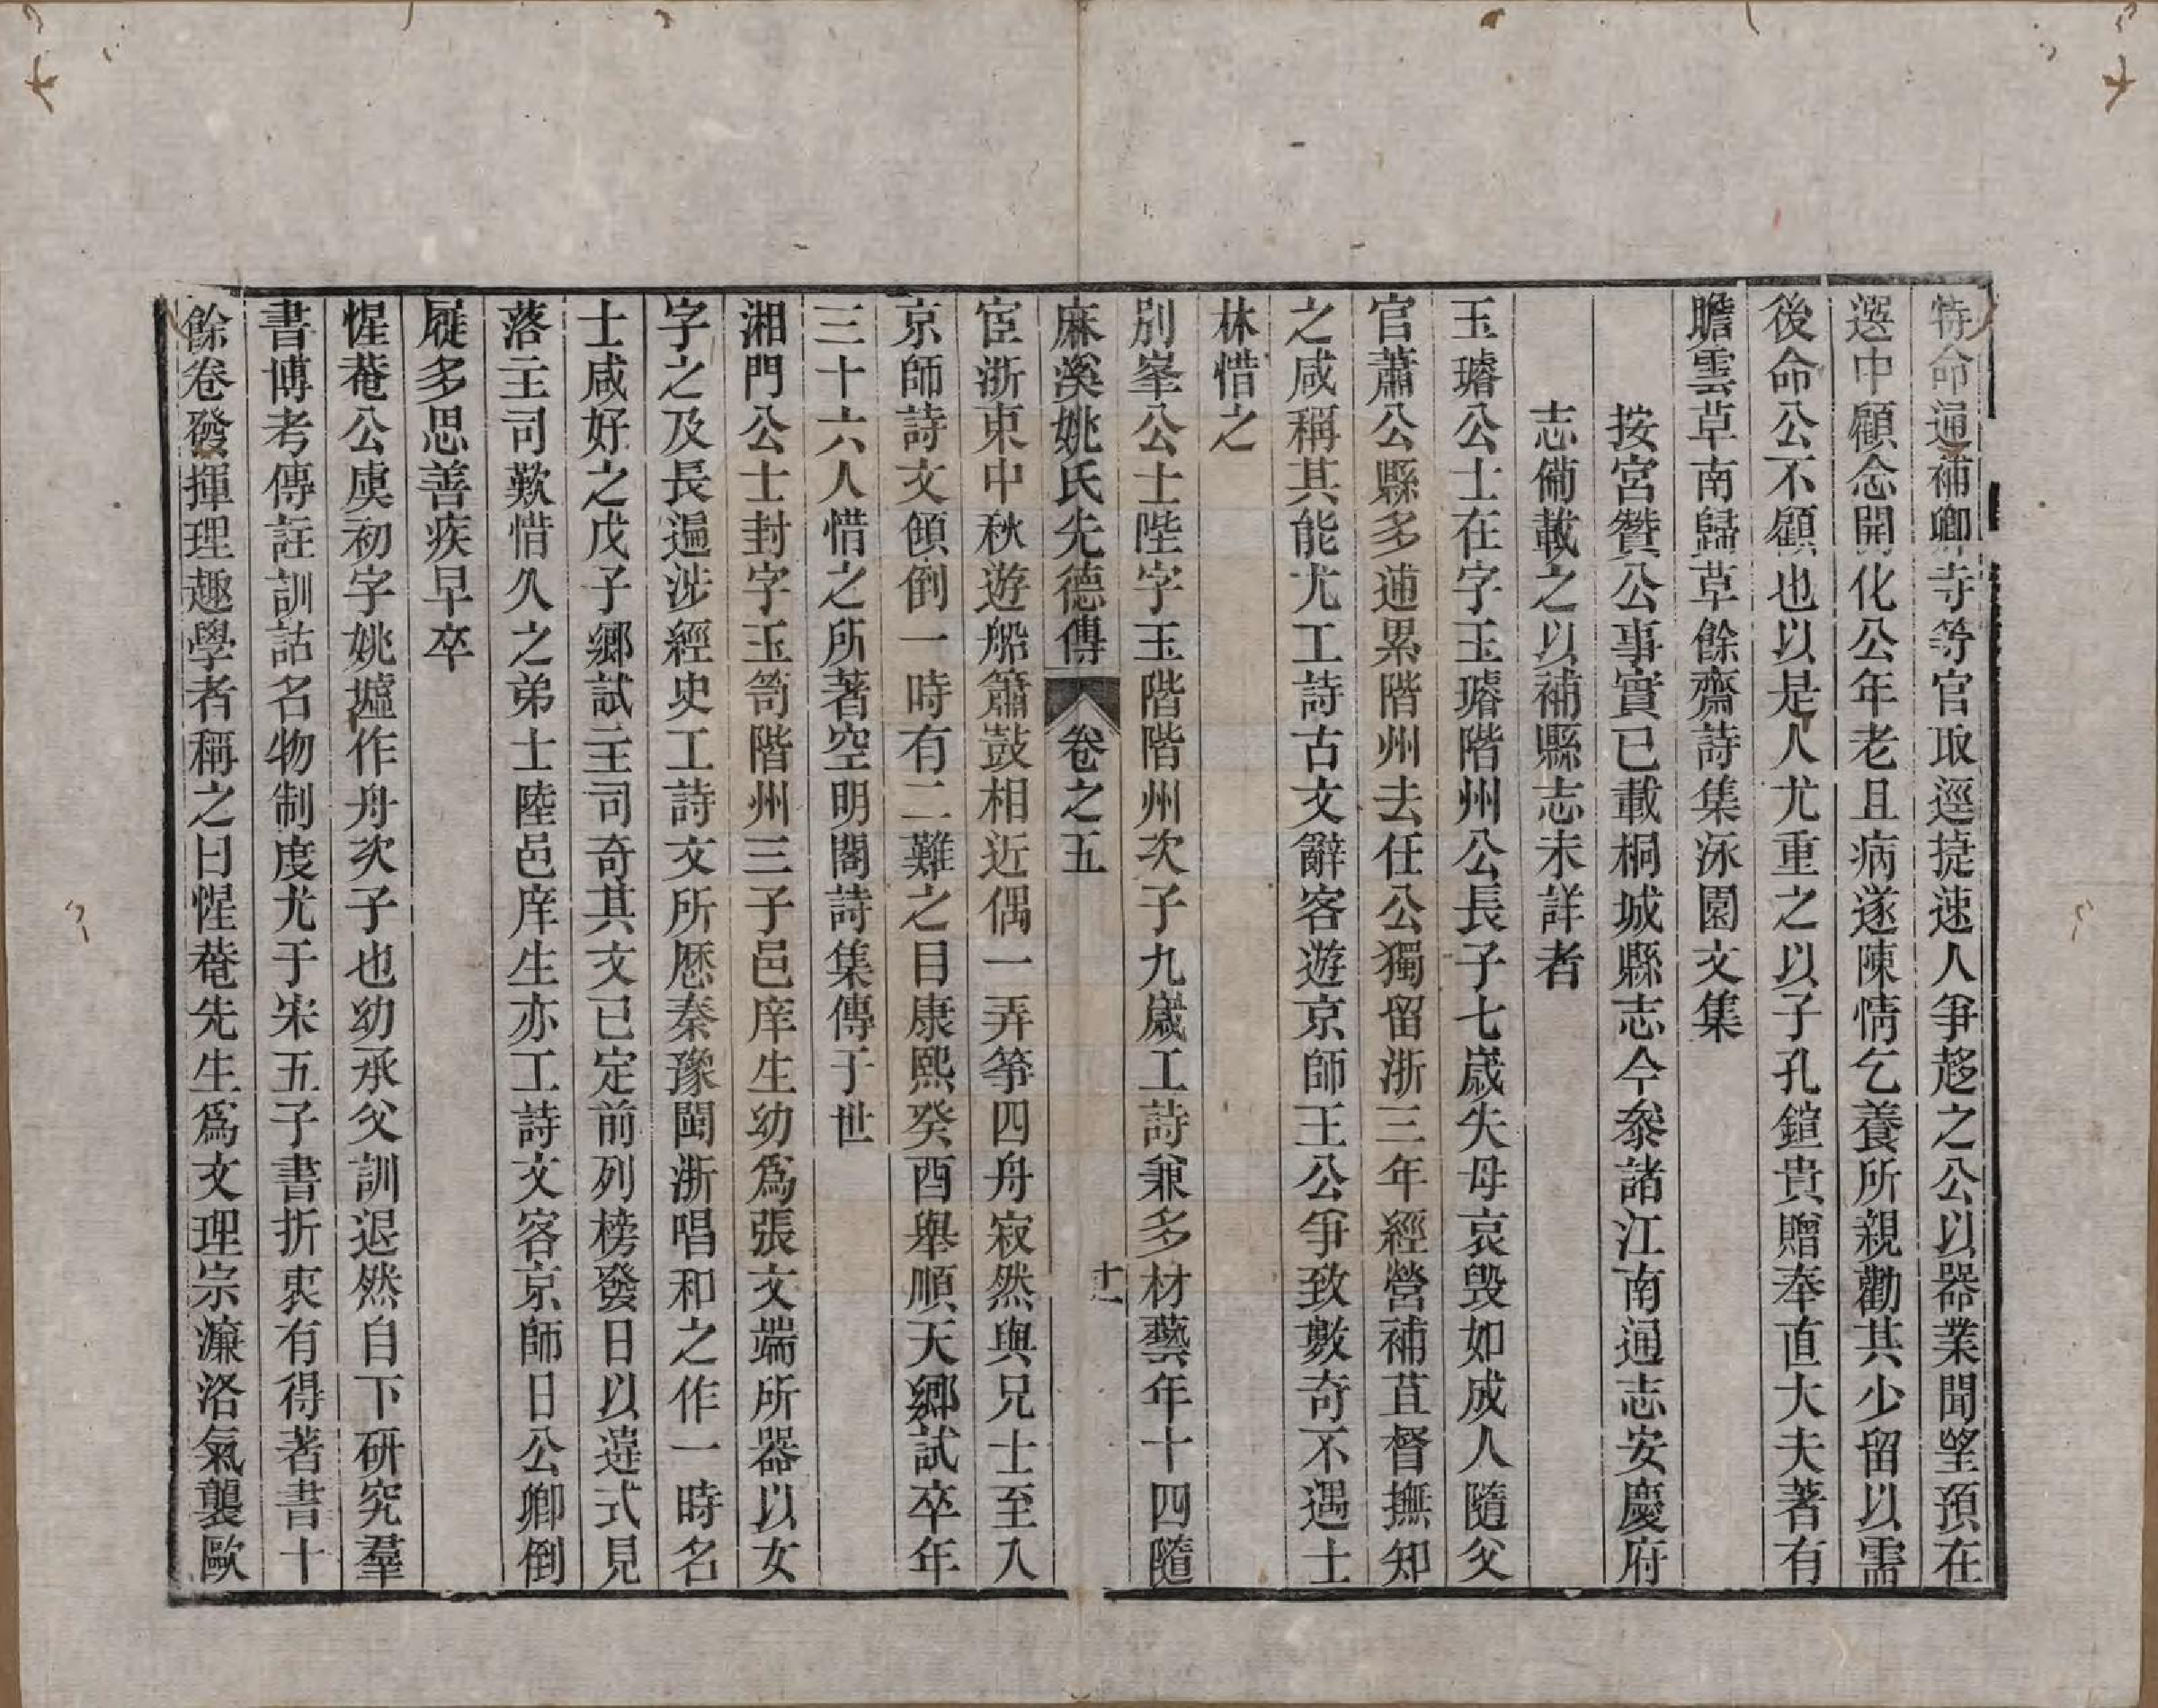 特命通補卿寺等官取逕捷速人爭趨之公以器業聞望預在
選中顧念開化公年老且病遂陳情乞養所親勸其少留以需
後命公不顧也以是人尤重之以子孔鍹貴贈奉直大夫著有
瞻雲草南歸草餘齋詩集泳園文集
按宮贊公事實已載桐城縣志今叅諸江南通志安慶府
志備載之以補縣志未詳者
玉璿公士在字玉璿階州公長子七歲失母哀毀如成人隨父
官蕭公縣多逋累階州去任公獨留浙三年經營補苴督撫知
之咸稱其能尤工詩古文辭客遊京師王公爭致數奇不遇士
林惜之
別峯公士陛字玉階階州次子九歲工詩兼多材藝年十四隨
麻溪姚氏先德傳 卷之五 十一
宦浙東中秋遊船簫鼓相近偶一弄箏四舟寂然與兄士至入
京師詩文傾倒一時有二難之目康熙癸酉舉順天鄉試卒年
三十六人惜之所著空明閣詩集傳于世
湘門公士封字玉笥階州三子邑庠生幼爲張文端所器以女
字之及長遍涉經史工詩文所歷秦豫閩浙唱和之作一時名
士咸好之戊子鄉試主司奇其文已定前列榜發日以違式見
落主司歎惜久之弟士陸邑庠生亦工詩文客京師日公卿倒
屣多思善疾早卒
惺菴公虞初字姚墟作舟次子也幼承父訓退然自下研究羣
書博考傳註訓詁名物制度尤于宋五子書折衷有得著書十
餘卷發揮理趣學者稱之曰惺菴先生爲文理宗濂洛氣襲歐